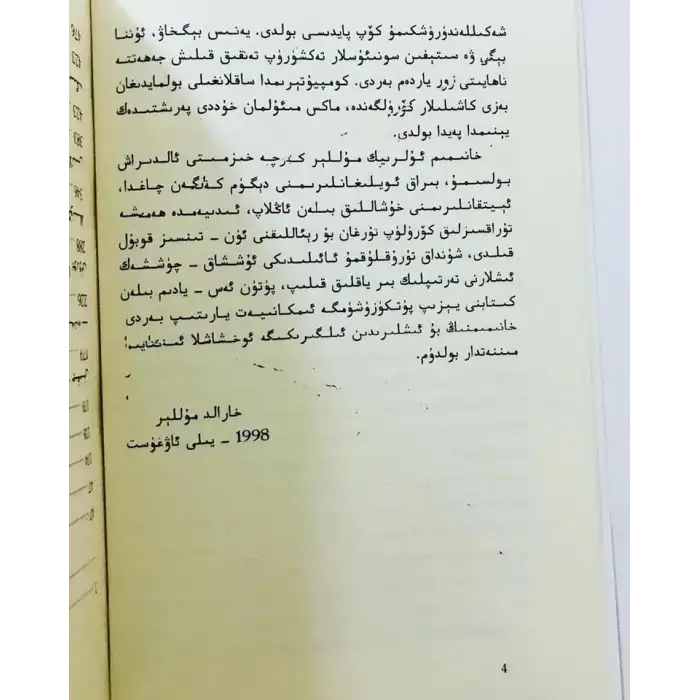 شەكىللەندۈرۈشكىمۇ كۆپ پايدىسى بولدى. يەنىس بېگخاۋ، ئۇننا
بېگي ۋە ستېفىن سونىئۇسلار تەكشۈرۈپ تەنقىق قىلىش جەھەتتە
ناھايىتى زور ياردەم بەردى. كومپيۇتېرىمدا ساقلانغىلى بولمايدىغان
بەزى كاشىلىلار كۆرۈلگەندە، ماكس مىئۇلمان خۇددى پەرىشتىدەك
يېنىمدا پەيدا بولدى.
خانىمىم ئۇلرىيك مۇللېر گەرچە خىزمىتى ئالدىراش
بولسىمۇ، بىراق ئويلىغانلىرىمنى دېگۈم كەلگەن چاغدا،
ئېيتقانلىرىمنى خۇشاللىق بىلەن ئاڭلاپ، ئىدىيەمدە ھەمىشە
تۇراقسىزلىق كۆرۈلۈپ تۇرغان بۇ رېئاللىقنى ئۈن – تىنسىز قوبۇل
قىلدى، شۇنداق تۇرۇقلۇقمۇ ئائىلىدىكى ئۇششاق – چۈششەك
ئىشلارنى تەرتىپلىك بىر ياقلىق قىلىپ، پۈتۈن ئەس – يادىم بىلەن
كىتابنى يېزىپ پۈتكۈزۈشۈمگە ئىمكانىيەت يارىتىپ بەردى
خانىمىمنىڭ بۇ ئىشلىرىدىن ئىلگىرىكىگە ئوخشاشلا ئىنتايىن
مىننەتدار بولدۇم.
خارالد مۇللېر
1998 – يىلى ئاۋغۇست
4